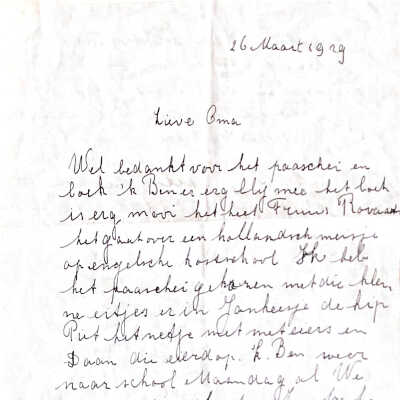 26 Maart 1929
Lieve Oma
Wel bedankt voor het paaschei en
boek 'k Ben er erg blij mee het boek
is erg mooi het heet Frenni
het gaat over een hollandsch meisje
op engelsche kostschool Ik heb
het paaschei gekozen met die klei
ne eitjes er in Janheesje de hip
Piet het netje met met eiers en
Daan die eierdop. k. Ben weer
naar school Maandag al We